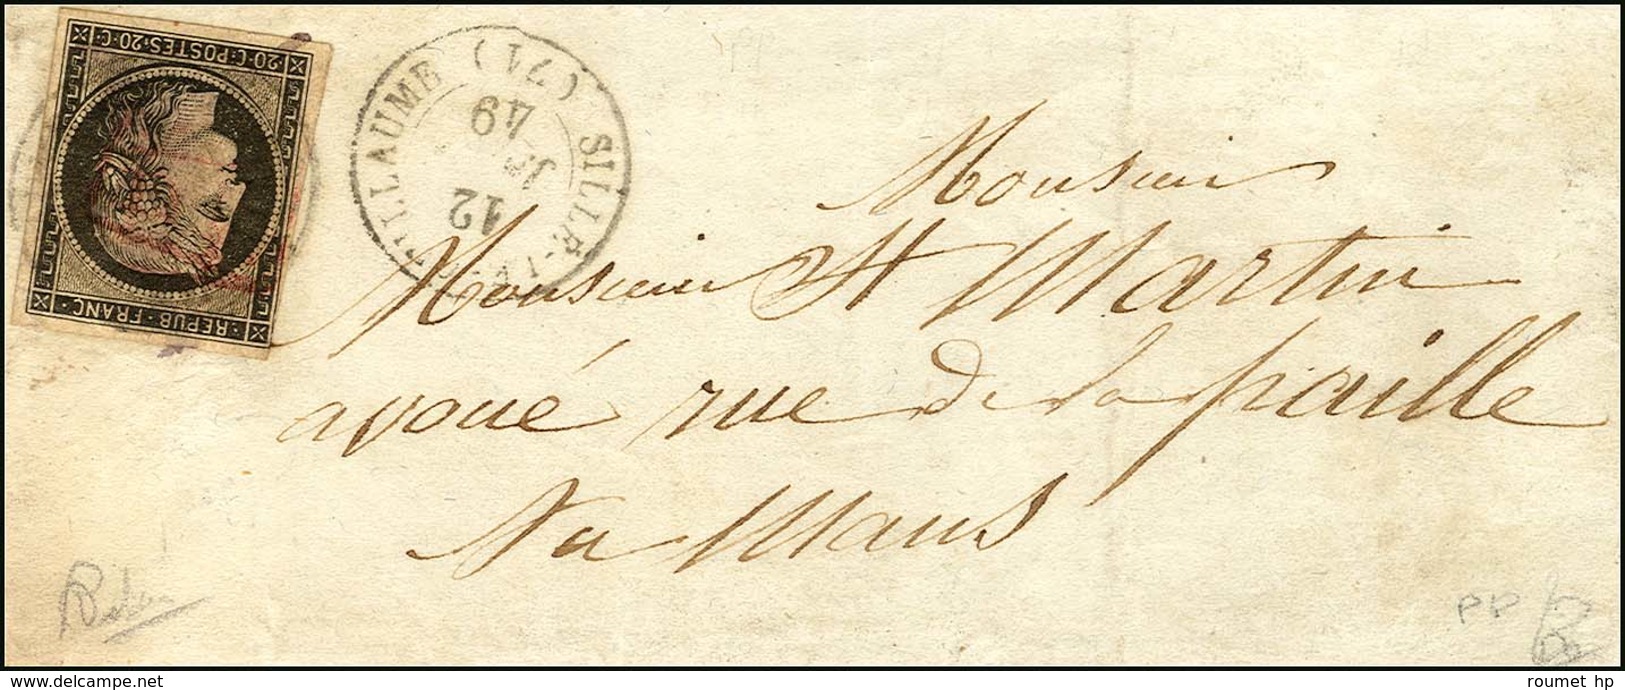 20·C·POSTES·20·C·
REPUB·FRANC·
SILLÉ-LE-GUILLAUME (71)
12
49
Monsieur
Monsieur St Martin
avoué rue de la paille
Au Mans
PP
www.delcampe.net
roumet hp